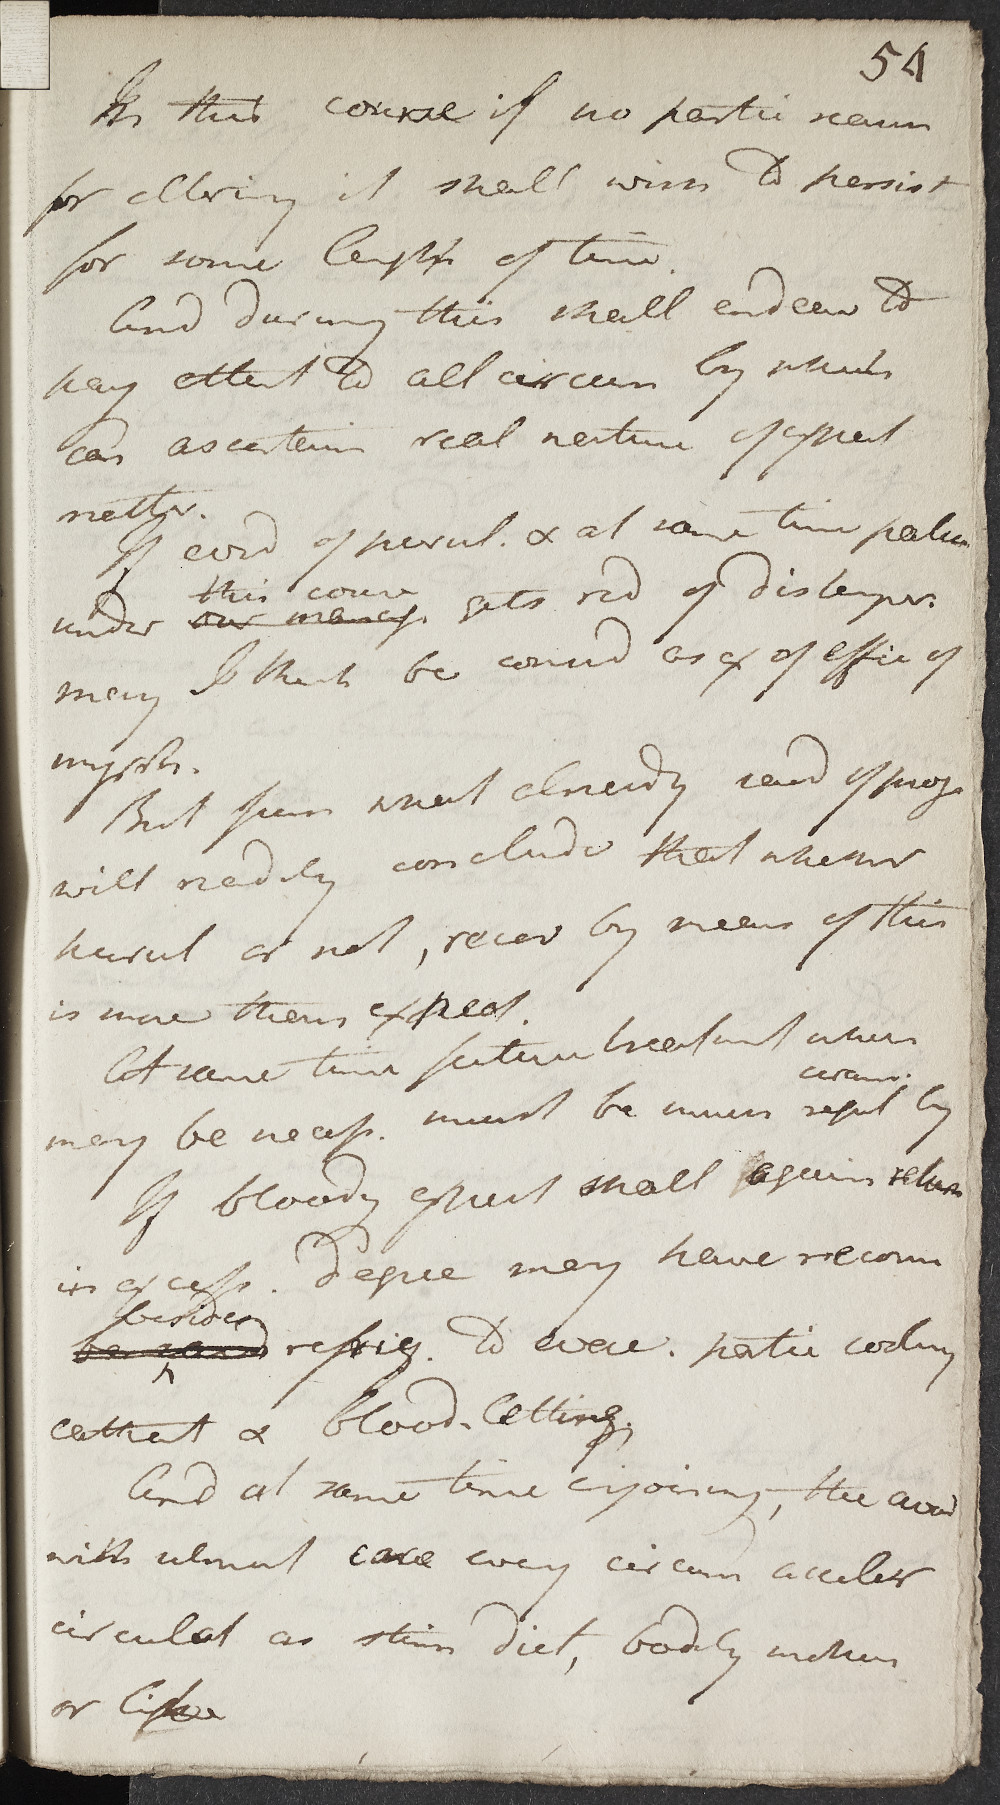 54
In this course if no partic reason
for altering it shall wish to persist
for some length of time.
And during this shall endeav to
pay attent to all circum by which
can ascertain real nature of expect
matter.
If evid of purul. & at same time patien
this course
under our manag. gets rid of distemper.
may I think be consid as ex of effic of
myrrh.
But from what already said of prog.
will readily conclude that whether
purul or not, recov by means of this
is more than expect.
At same time future treatment when
circum.
may be necess. must be much regul by
If bloody expect shall again return
in excess. Degree may have recom
besides
refrig. to evac. partic
cathart & blood-letting.
And at same time enjoining, the avoid
with utmost care every circum acceler
circulat as stim diet, bodily motion
or like